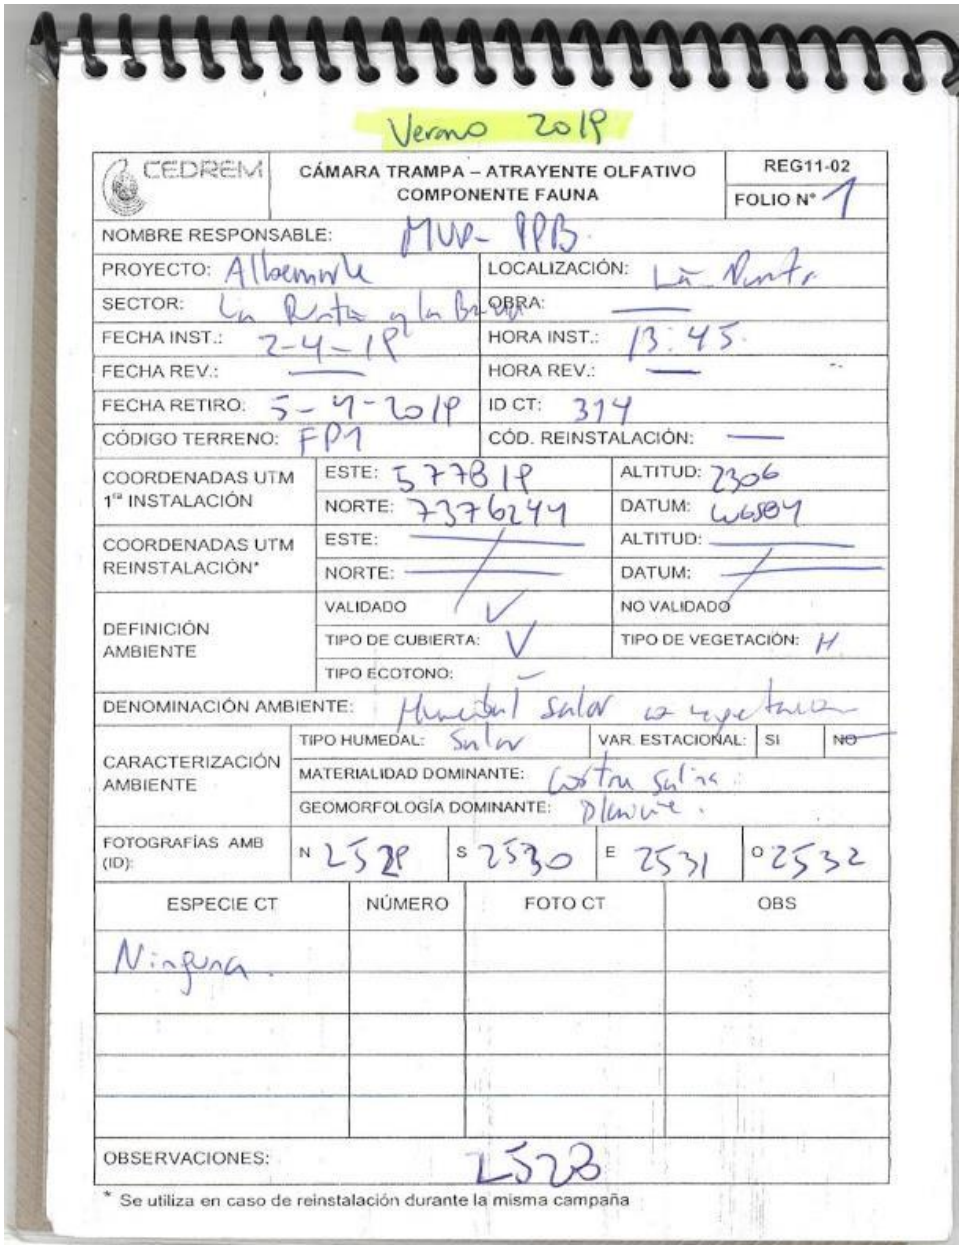 Verano 2019
CEDREM
CÁMARA TRAMPA – ATRAYENTE OLFATIVO
COMPONENTE FAUNA
REG11-02
FOLIO N° 1
NOMBRE RESPONSABLE: MVP- PPB.
PROYECTO: Albemarle LOCALIZACIÓN: La Punta
SECTOR: La Punta y la Brava OBRA: —
FECHA INST.: 2-4-19 HORA INST.: 13:45.
FECHA REV.: — HORA REV.: —
FECHA RETIRO: 5-4-2019 ID CT: 314
CÓDIGO TERRENO: FP1 CÓD. REINSTALACIÓN: —
COORDENADAS UTM
1ra INSTALACIÓN
ESTE: 577819 ALTITUD: 2306
NORTE: 7376244 DATUM: WGS84
COORDENADAS UTM
REINSTALACIÓN*
ESTE: — ALTITUD: —
NORTE: — DATUM: —
DEFINICIÓN
AMBIENTE
VALIDADO ✓ NO VALIDADO
TIPO DE CUBIERTA: V TIPO DE VEGETACIÓN: H
TIPO ECOTONO: –
DENOMINACIÓN AMBIENTE: Humedal salar con vegetacion
CARACTERIZACIÓN
AMBIENTE
TIPO HUMEDAL: Salar VAR. ESTACIONAL: SI NO
MATERIALIDAD DOMINANTE: Costra salina
GEOMORFOLOGÍA DOMINANTE: Planicie.
FOTOGRAFÍAS AMB
(ID):
N 2529 S 2530 E 2531 O 2532
ESPECIE CT NÚMERO FOTO CT OBS
Ninguna.
OBSERVACIONES: 2528
* Se utiliza en caso de reinstalación durante la misma campaña